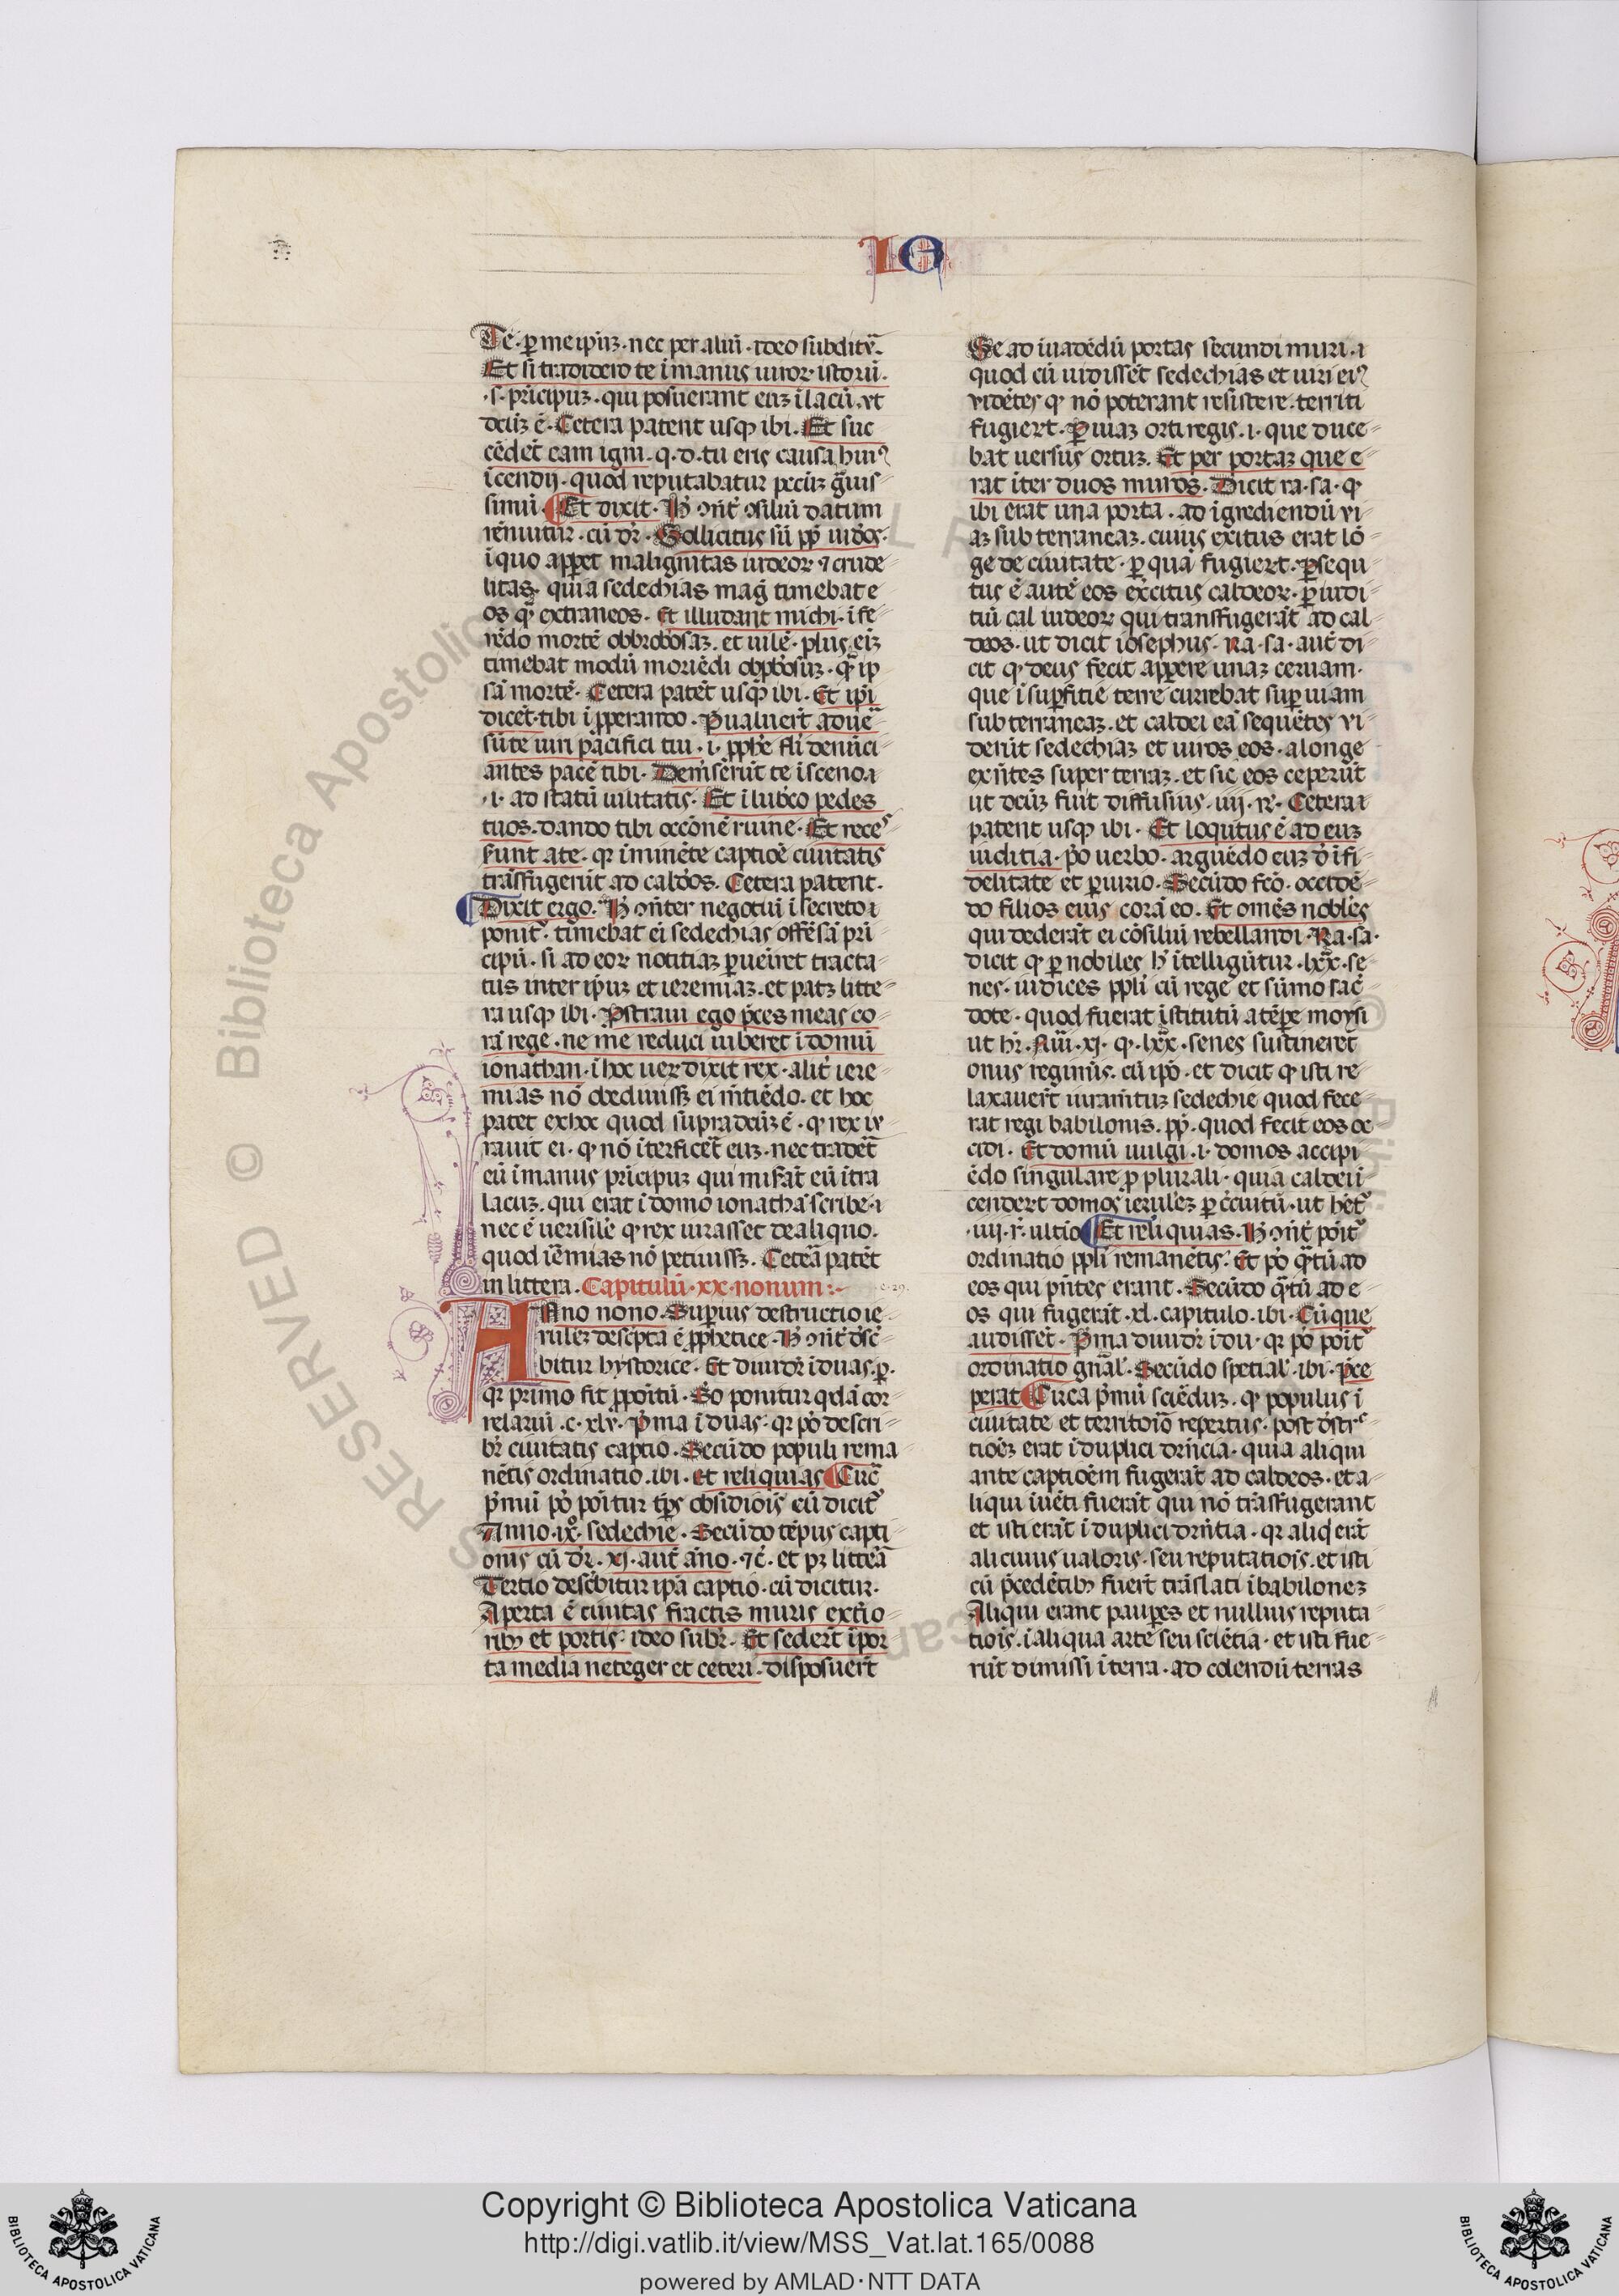 IE
Te · ꝑ me ip̄uꝫ · nec per aliū · ideo subditĕ ·
Et si tradidero te ī manus uiroꝝ istorū ·
· s · prīcipuꝫ · qui posuerant euꝫ ī lacū · vt
dcūꝫ ē · Cetera patent usqꝫ ibi · Et suc
cēdēt eam igni · q · d · tu eris causa huiꝰ
īcendij · quod reputabatur pccūꝫ gͣuis
simū · Et dixit · H̄ ꝯn̄r ꝯsiliū datum
rēnuitur · cū dr̄ · Sollicitus sū pp̄ iudōs ·
ī quo appꝫet malignitas iudeoꝝ ⁊ crude
litas · quia sedechias maḡ timebat e
os qͣ extraneos · Et illudant michi · īfe
rēdo mortē obbrobͦsaꝫ · et uilē · plus eīꝫ
timebat modū moriēdi obpbͦsuꝫ · qͣ ip
sā mortē · Cetera patēt usqꝫ ibi · Et ip̄i
dicēt · tibi īpperando · Pͥualuerūt aduē
sū te uiri pacifici tui · i · ꝓph̄e fl̄i denūci
antes pacē tibi · Demserūt te ī sceno ·
· i · ad statū uilitatis · Et ī lubͥco pedes
tuos · dando tibi occōnē ruine · Et reces
sunt a te · qꝛ īminēte captiōe ciuitatis
trāsfugerūt ad caldōs · Cetera patent ·
Dixit ergo · H̄ ꝯn̄ter negotiū ī secreto
ponitͬ · timebat ei sedechias offēsā prī
cipū · si ad eoꝝ notitiaꝫ ꝑueīret tracta
tus inter ip̄uꝫ et ieremiaꝫ · et patꝫ litte
ra usqꝫ ibi · Pͦstraui ego pͥces meas co
rā rege · ne me reduci iuberet ī domū
ionathan · ī hoc ueꝝ dixit rex · alit̄ iere
mias nō obediuissꝫ ei m̄tiēdo · et hoc
patet ex hoc quod supra dcūꝫ ē · ꝙ rex iu
rauit ei · ꝙ nō īterficēt euꝫ · nec tradēt
eū ī manus prīcipuꝫ qui misāt eū ītra
lacuꝫ · qui erat ī domo ionathā scribe ·
nec ē uerisilē ꝙ rex iurasset de aliquo ·
quod iēmias nō petiuissꝫ · Ceteͣ patēt
in littera · Capitulū · xx · nonum :~
c · 29 ·
ANno nono · Supͥus destructio ie
rusleꝫ descͥpta ē ꝓphetice · H̄ ꝯn̄t dͦsc̄
bitur hystorice · Et diuidr̄ ī duas · ꝑ ·
qꝛ primo fit ꝓpoītū · Sͦo ponitur qdā cor
relariū · c · xlv · Pͥma ī duas · qꝛ pͦo descri
br̄ ciuitatis captio · Secūdo populi rema
nētis ordinatio · ibi · et reliquias Circͣ
pͥmū pͦo poītur tp̄s obsidiōis cū dicitͬ
Anno · ixͦ · sedechie · Secūdo tēpus capti
onis cū dr̄ · xj · aut̄ āno · ⁊c̄ · et pꝫ litteͣ
Tertio descͥbitur ipā captio · cū dicitur ·
Aperta ē ciuitas fractis muris extͥio
ribꝫ et portis · ideo subr̄ · Et sedeīt ī por
ta media neteger et ceteri · disposuerūt
Se ad īuadēdū portas secundi muri ·
quod cū uidissēt sedechias et uiri eiꝰ
vidētes ꝙ nō poterant resistere · territi
fugiert · Pͥ uiaꝫ orti regis · i · que duce
bat uersus ortuꝫ · Et per portaꝫ que e
rat īter duos muros · Dicit ra · sa · ꝙ
ibi erat una porta · ad īgrediendū vi
aꝫ sub terraneaꝫ · cuius exitus erat lō
ge de ciuitate · ꝑ quā fugiert · Pͥsequ
tus ē autē eos exc̄itus caldeoꝝ · ꝑ iudi
tiū cal iudeoꝝ qui transfugerāt ad cal
deos · ut dicit iosephus · Ra · sa · aut̄ di
cit ꝙ deus fecit appere unaꝫ ceruam ·
que ī supͥficie terre currebat supͥ uiam
sub terraneaꝫ · et caldei eā sequētes vi
derūt sedechiaꝫ et uiros eos · a longe
exn̄tes super terraꝫ · et sic eos ceperūt
ut dcūꝫ fuit diffusius · iiij · rͤ · Cetera
patent usqꝫ ibi · Et loqutus ē ad euꝫ
iuditia · pͦo uerbo · arguēdo euꝫ dͦ īfi
delitate et ꝑiurio · Secūdo fcōͦ · occidē
do filios eius corā eo · Et omēs nobles
qui dederāt ei cōsiliū rebellandi · Ra · sa ·
dicit ꝙ ꝑ nobiles h̄ ītelligūtur · lxx · se
nes · iudices ppl̄i cū rege et sūmo sac̄
dote · quod fuerat īstitutū a tēpͤ moysi
ut hr̄ · Nūī · xj · ꝙ · lxx · senes sustineret
onus regimīs · cū ip̄o · et dicit ꝙ isti re
laxauert iuram̄tuꝫ sedechie quod fece
rat regi babilonis · pp̄ · quod fecit eos oc
cidi · Et domū uulgi · i · domos accipi
ēdo singulare ꝓ plurali · quia caldei ī
cendert domos ierusleꝫ ꝑ cͥcuitū · ut hētͬ
· iiij · r̄ · ultio Et reliquias · H̄ ꝯn̄t poītͬ
ordinatio ppl̄i remanētis · Et pͦo qͣtū ad
eos qui p̄ntes erant · Secūdo qͣtū ad e
os qui fugerāt · xl · capitulo · ibi · Cūque
audisset · Pͥma diuidr̄ ī du · qꝛ pͦo poītͬ
ordinatio gn̄al̄ · Secūdo spetial̄ · ibi · pͥce
perat Circa pͥmū sciēduꝫ · ꝙ populus ī
ciuitate et territoͥo repertus · post dͦstr̄c
tiōꝫ erat ī duplici drn̄cia · quia aliqui
ante captiōem fugerāt ad caldeos · et a
liqui īuēti fuerāt qui nō trāsfugerant
et isti erāt ī duplici drn̄tia · qꝛ aliqͥ erāt
alicuius ualoris · seu reputatiōis · et isti
cū pͥcedētibꝫ fuerūt trāslati ī babiloneꝫ
Aliqui erant pauꝑes et nullius reputa
tiōis · ī aliqua arte seu sciētia · et isti fue
rūt dimissi ī terra · ad colendū terras
RESERVED © Biblioteca Apostolica
Copyright © Biblioteca Apostolica Vaticana
http://digi.vatlib.it/view/MSS_Vat.lat.165/0088
powered by AMLAD·NTT DATA
BIBLIOTECA APOSTOLICA VATICANA
BIBLIOTECA APOSTOLICA VATICANA